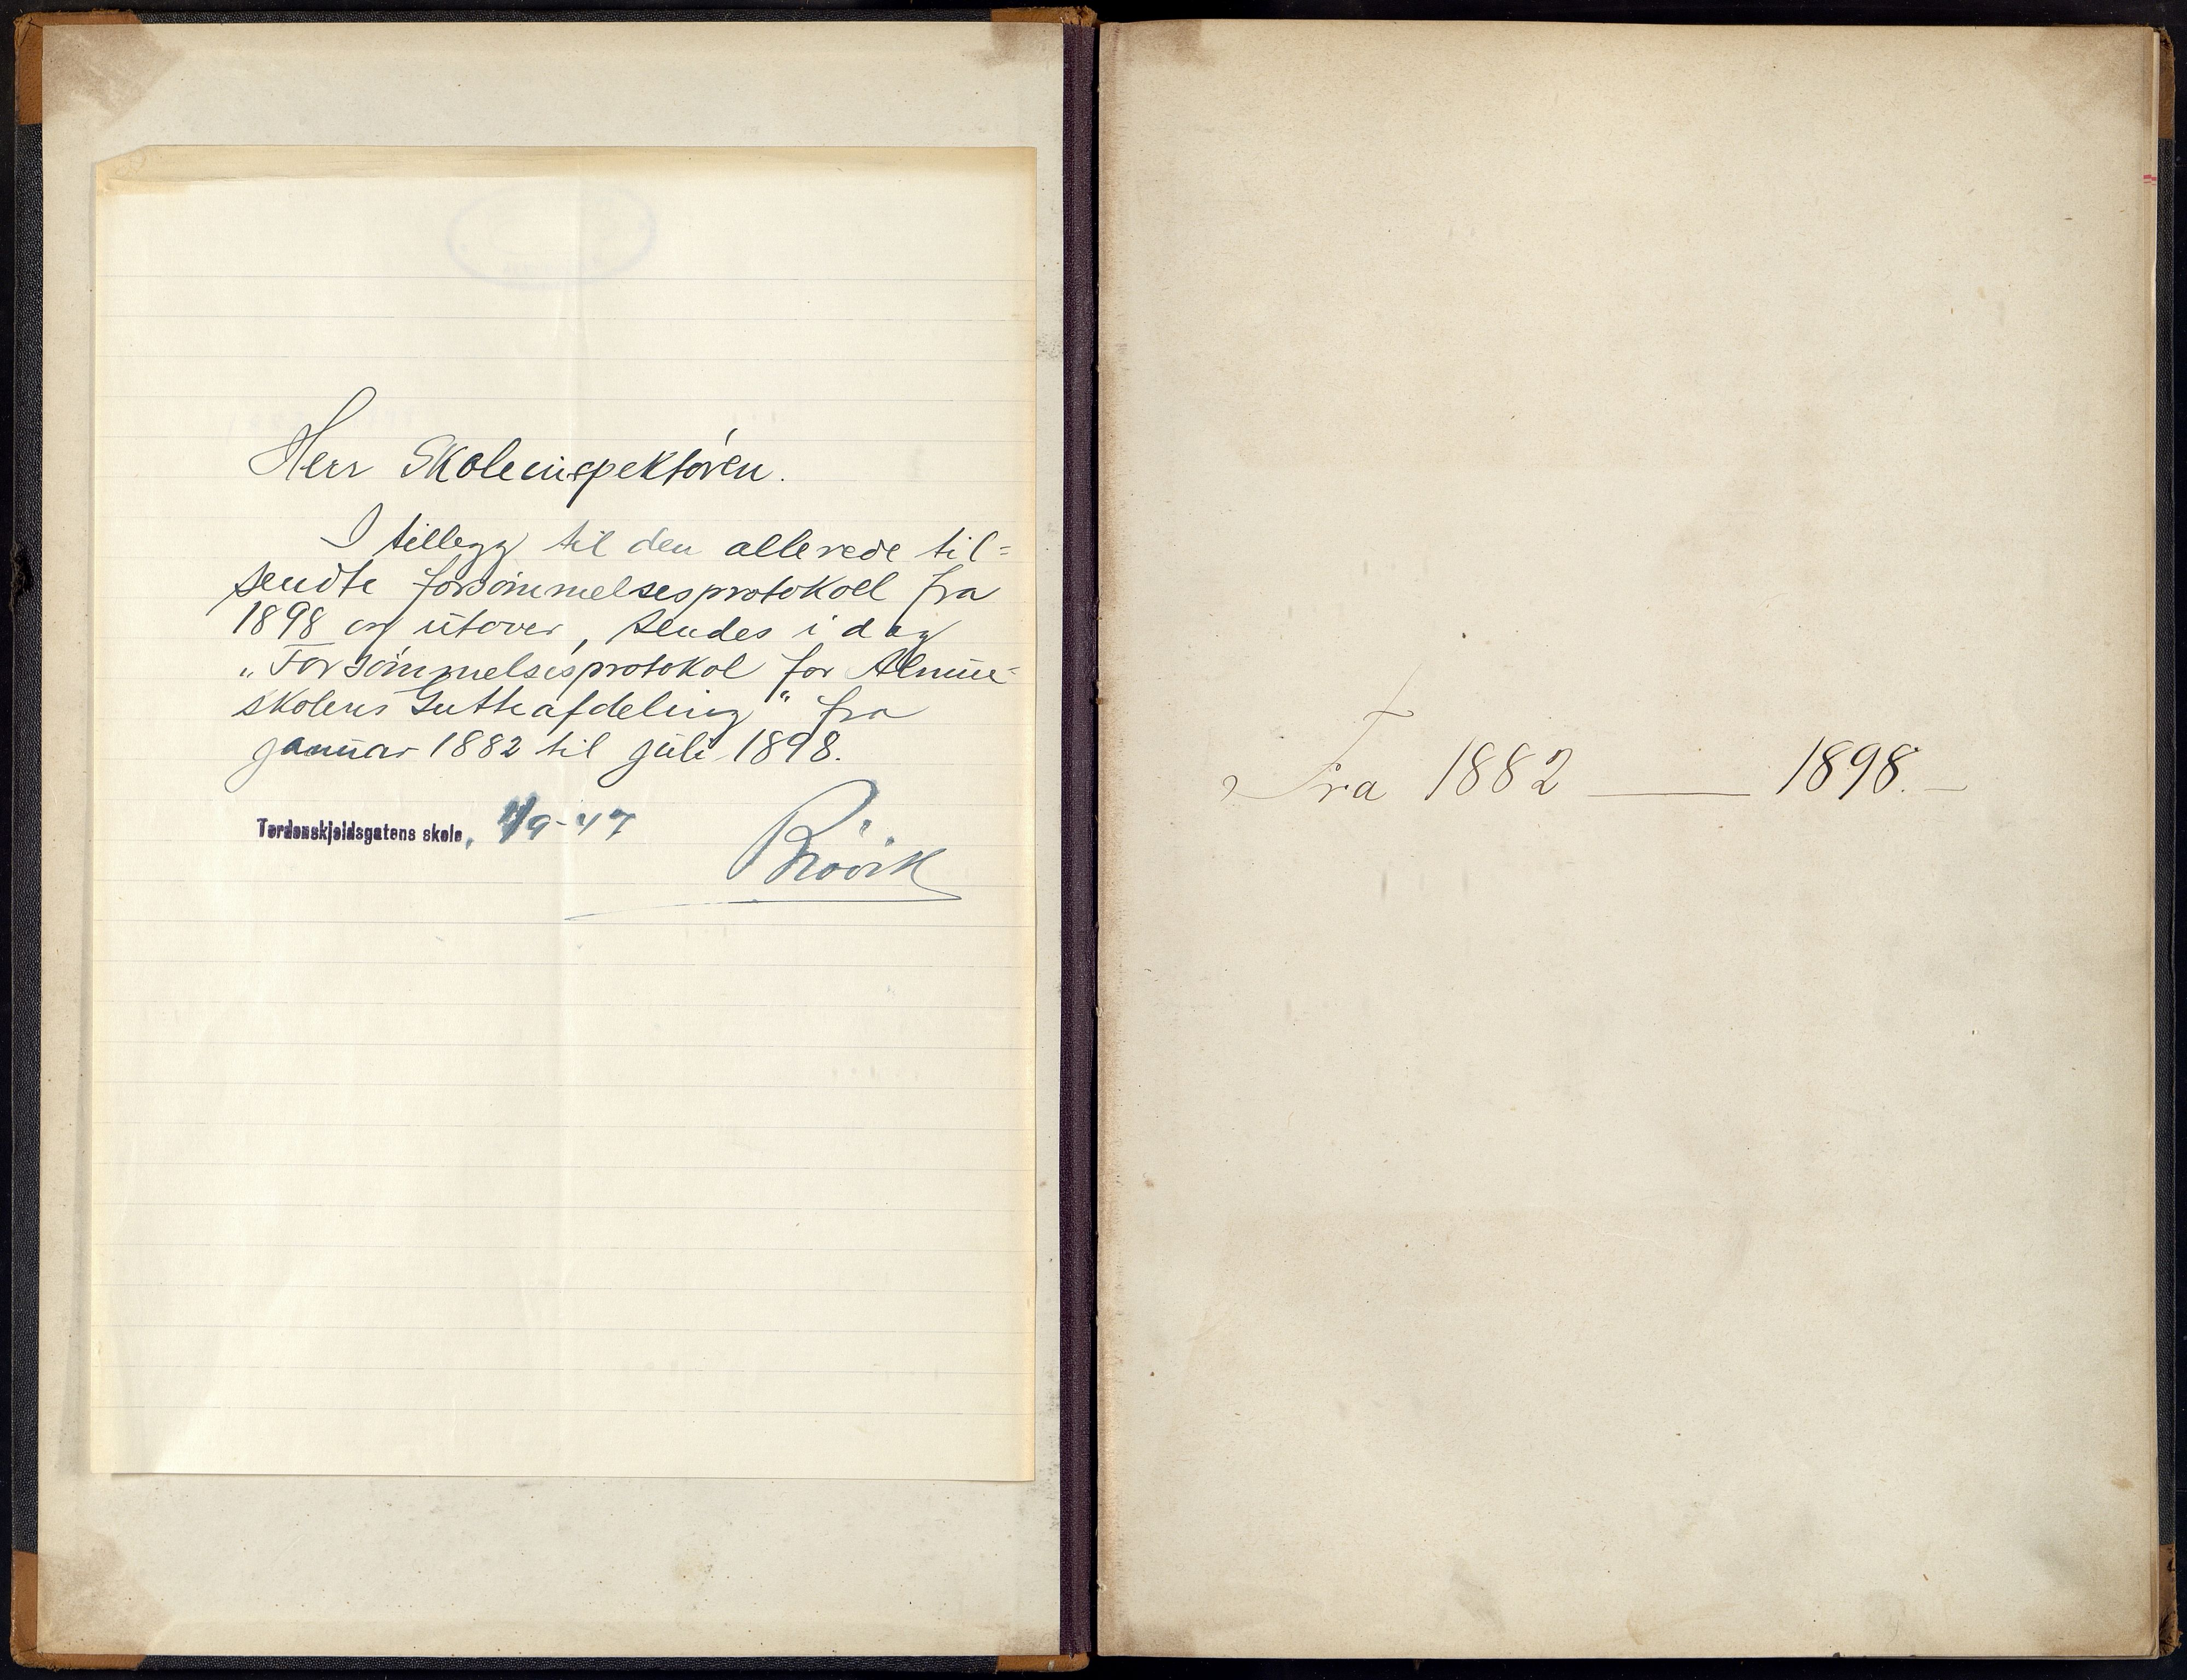 Herr Skoleinspektøren.
I tillegg til den allerede til=
sendte forsømmelsesprotokoll fra
1898 og utover, sendes i dag
„Forsømmelsesprotokol for Almue-
skolens Gutteafdeling" fra
januar 1882 til juli 1898.
Tordenskjoldsgatens skole, /9-47
Fra 1882 — 1898.—